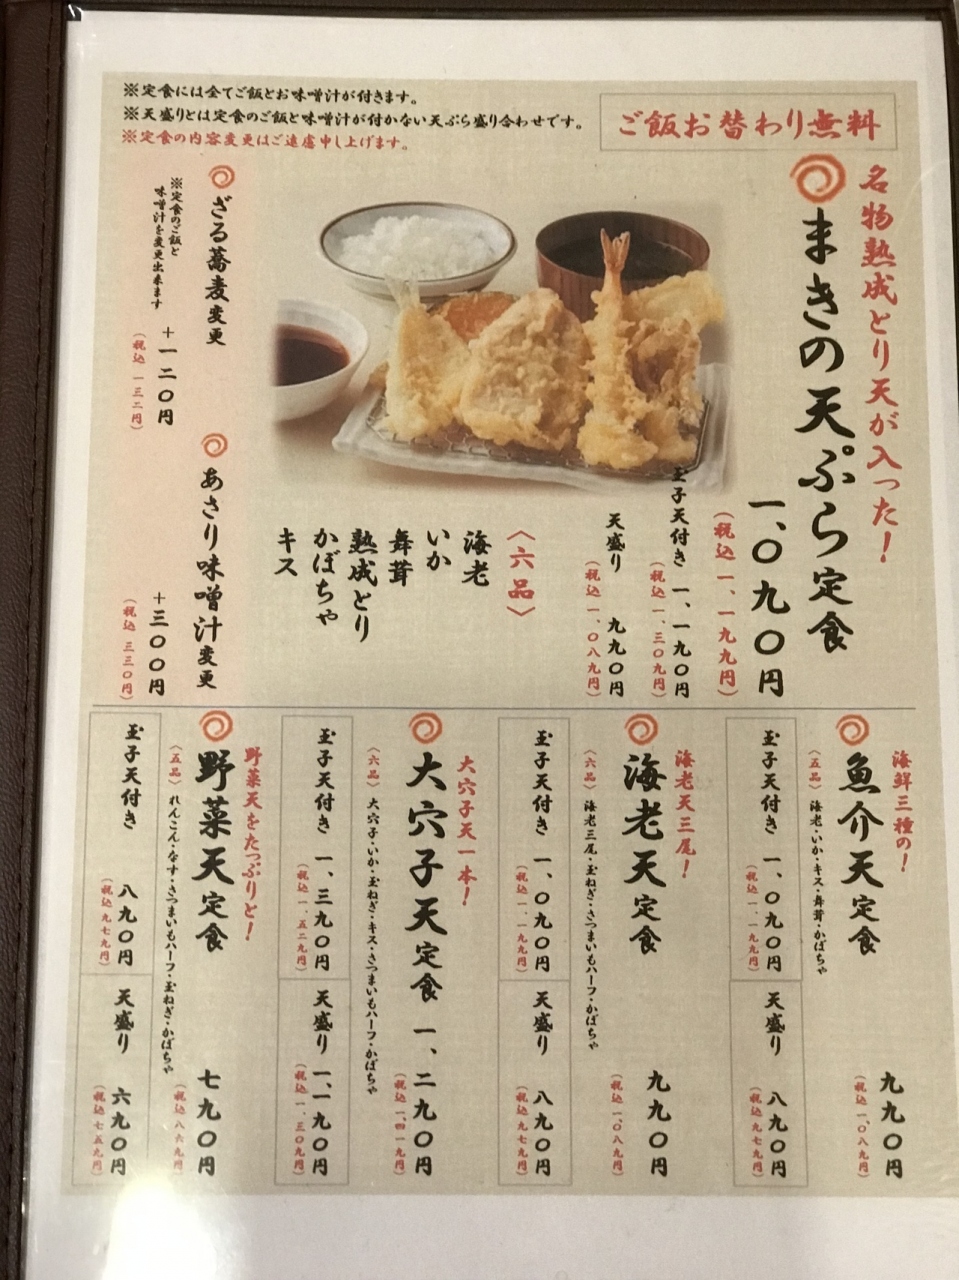 ※定食には全てご飯とお味噌汁が付きます。
※天盛りとは定食のご飯と味噌汁が付かない天ぷら盛り合わせです。
※定食の内容変更はご遠慮申し上げます。
ご飯お替わり無料
名物熟成とり天が入った!
まきの天ぷら定食
一、〇九〇円
(税込 一、一九九円)
玉子天付き 一、一九〇円
(税込 一、三〇九円)
天盛り 九九〇円
(税込 一、〇八九円)
〈六品〉
海老
いか
舞茸
熟成とり
かぼちゃ
キス
ざる蕎麦変更
※定食のご飯と
味噌汁を変更出来ます
+一二〇円
(税込 一三二円)
あさり味噌汁変更
+三〇〇円
(税込 三三〇円)
海鮮三種の!
魚介天定食
九九〇円
(税込 一、〇八九円)
〈五品〉海老・いか・キス・舞茸・かぼちゃ
玉子天付き 一、〇九〇円
(税込 一、一九九円)
天盛り 八九〇円
(税込 九七九円)
海老天三尾!
海老天定食
九九〇円
(税込 一、〇八九円)
〈六品〉海老三尾・玉ねぎ・さつまいもハーフ・かぼちゃ
玉子天付き 一、〇九〇円
(税込 一、一九九円)
天盛り 八九〇円
(税込 九七九円)
大穴子天一本!
大穴子天定食 一、二九〇円
(税込 一、四一九円)
〈六品〉大穴子・いか・玉ねぎ・キス・さつまいもハーフ・かぼちゃ
玉子天付き 一、三九〇円
(税込 一、五二九円)
天盛り 一、一九〇円
(税込 一、三〇九円)
野菜天をたっぷりと!
野菜天定食
七九〇円
(税込 八六九円)
〈五品〉れんこん・なす・さつまいもハーフ・玉ねぎ・かぼちゃ
玉子天付き 八九〇円
(税込 九七九円)
天盛り 六九〇円
(税込 七五九円)